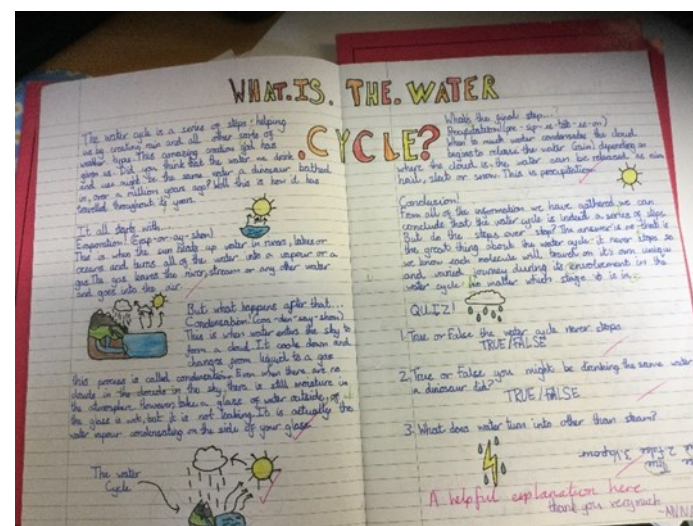 WHAT.IS. THE. WATER
.CYCLE?
The water cycle is a series of steps helping
us by creating rain and all other sorts of
weather types. This amazing creation God has
given us. Did you think that the water we drink
and use might be the same water a dinosaur bathed
in, over a million years ago? Well this is how it has
travelled throughout years.
It all starts with...
Evaporation! (Eap-or-ay-shon)
This is when the sun heats up water in rivers, lakes or
oceans and turns all of the water into a vapour or a
gas. The gas leaves the river, stream or any other water
and goes into the air.
But what happens after that...
Condensation! (con-den-say-shon)
This is when water enters the sky to
form a cloud. It cools down and
changes from liquid to a gas
this process is called condensation. Even when there are no
clouds in the sky, there is still moisture in
the atmosphere. However, take a glass of water outside,
the glass is wet, but it is not leaking. It is actually the
water vapour condensating on the side of your glass.
The water
Cycle
What's the final step...?
Precipitation!
When to much water condensates the cloud
begins to release the water (rain) depending on
where the cloud is, the water can be released as rain
hail, sleet or snow. This is precipitation.
Conclusion!
From all of the information we have gathered, we can
conclude that the water cycle is indeed a series of steps.
But do the steps ever stop? The answer is no-that is
the great thing about the water cycle: it never stops so
we know each molecule will travel on it's own unique
and varied journey during its involvement in the
water cycle. No matter which stage it is in.
QUIZ!
1. True or False the water cycle never stops
TRUE/FALSE
2. True or False you might be drinking the same water
a dinosaur did?
TRUE/FALSE
3. What does water turn into other than steam?
True 2. False 3. Vapour
A helpful explanation here
thank you very much